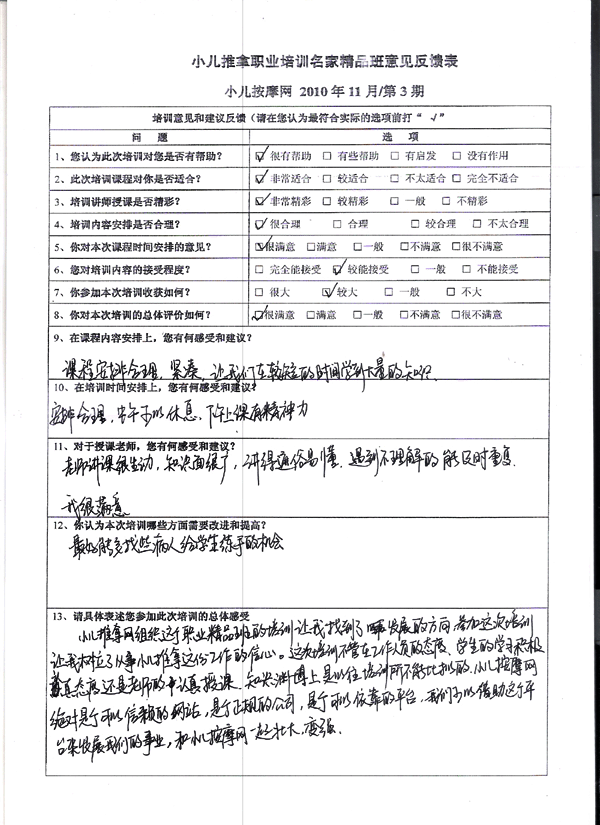 小儿推拿职业培训名家精品班意见反馈表
小儿按摩网 2010 年 11 月/第 3 期
培训意见和建议反馈（请在您认为最符合实际的选项前打“ √”
问 题 选 项
1、您认为此次培训对您是否有帮助？ ☑很有帮助 □有些帮助 □有启发 □没有作用
2、此次培训课程对你是否适合？ ☑非常适合 □较适合 □不太适合 □完全不适合
3、培训讲师授课是否精彩？ ☑非常精彩 □较精彩 □一般 □不精彩
4、培训内容安排是否合理？ ☑很合理 □合理 □较合理 □不太合理
5、你对本次课程时间安排的意见？ ☑很满意 □满意 □一般 □不满意 □很不满意
6、您对培训内容的接受程度？ □完全能接受 ☑较能接受 □一般 □不能接受
7、你参加本次培训收获如何？ □很大 ☑较大 □一般 □不大
8、你对本次培训的总体评价如何？ ☑很满意 □满意 □一般 □不满意 □很不满意
9、在课程内容安排上，您有何感受和建议？
课程安排合理，紧凑，让我们在较短的时间学到大量的知识.
10、在培训时间安排上，您有何感受和建议？
安排合理，中午可以休息，下午上课有精神力
11、对于授课老师，您有何感受和建议？
老师讲课很生动，知识面很广，讲得通俗易懂. 遇到不理解的能及时重复.
我很满意
12、你认为本次培训哪些方面需要改进和提高？
最好能多找些病人给学生练手的机会
13、请具体表述您参加此次培训的总体感受
小儿推拿网组织这个职业精品班的培训让我找到了发展的方向. 参加这次培训
让我树立了从事小儿推拿这份工作的信心。这次培训不管在工作人员的态度、学生的学习积极
态度还是老师的认真授课、知识渊博上是以往培训所不能比拟的. 小儿按摩网
绝对是个可以信赖的网站，是个正规的公司，是个可以依靠的平台，我们可以借助这个平
台来发展我们的事业，和小儿按摩网一起壮大，变强.